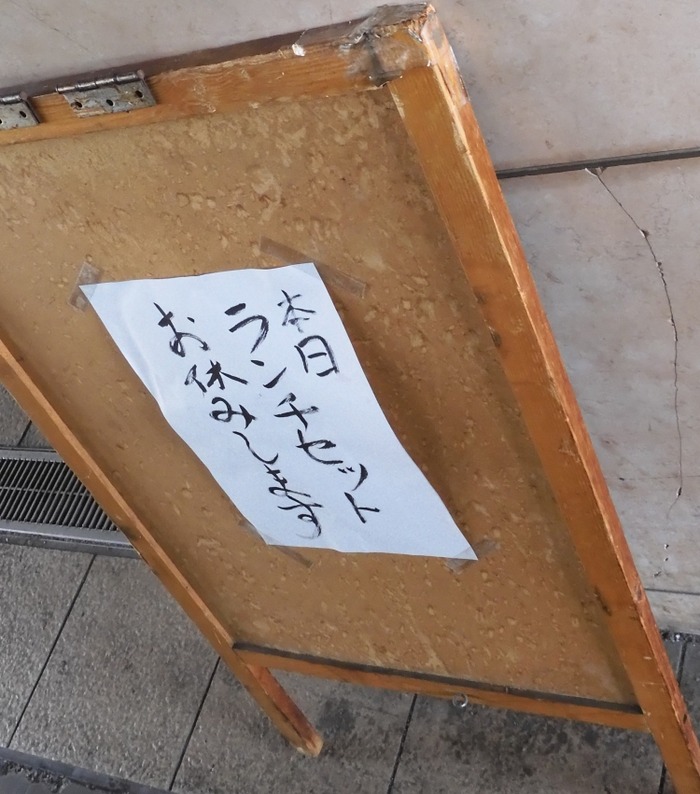 本日
ランチセット
お休みします